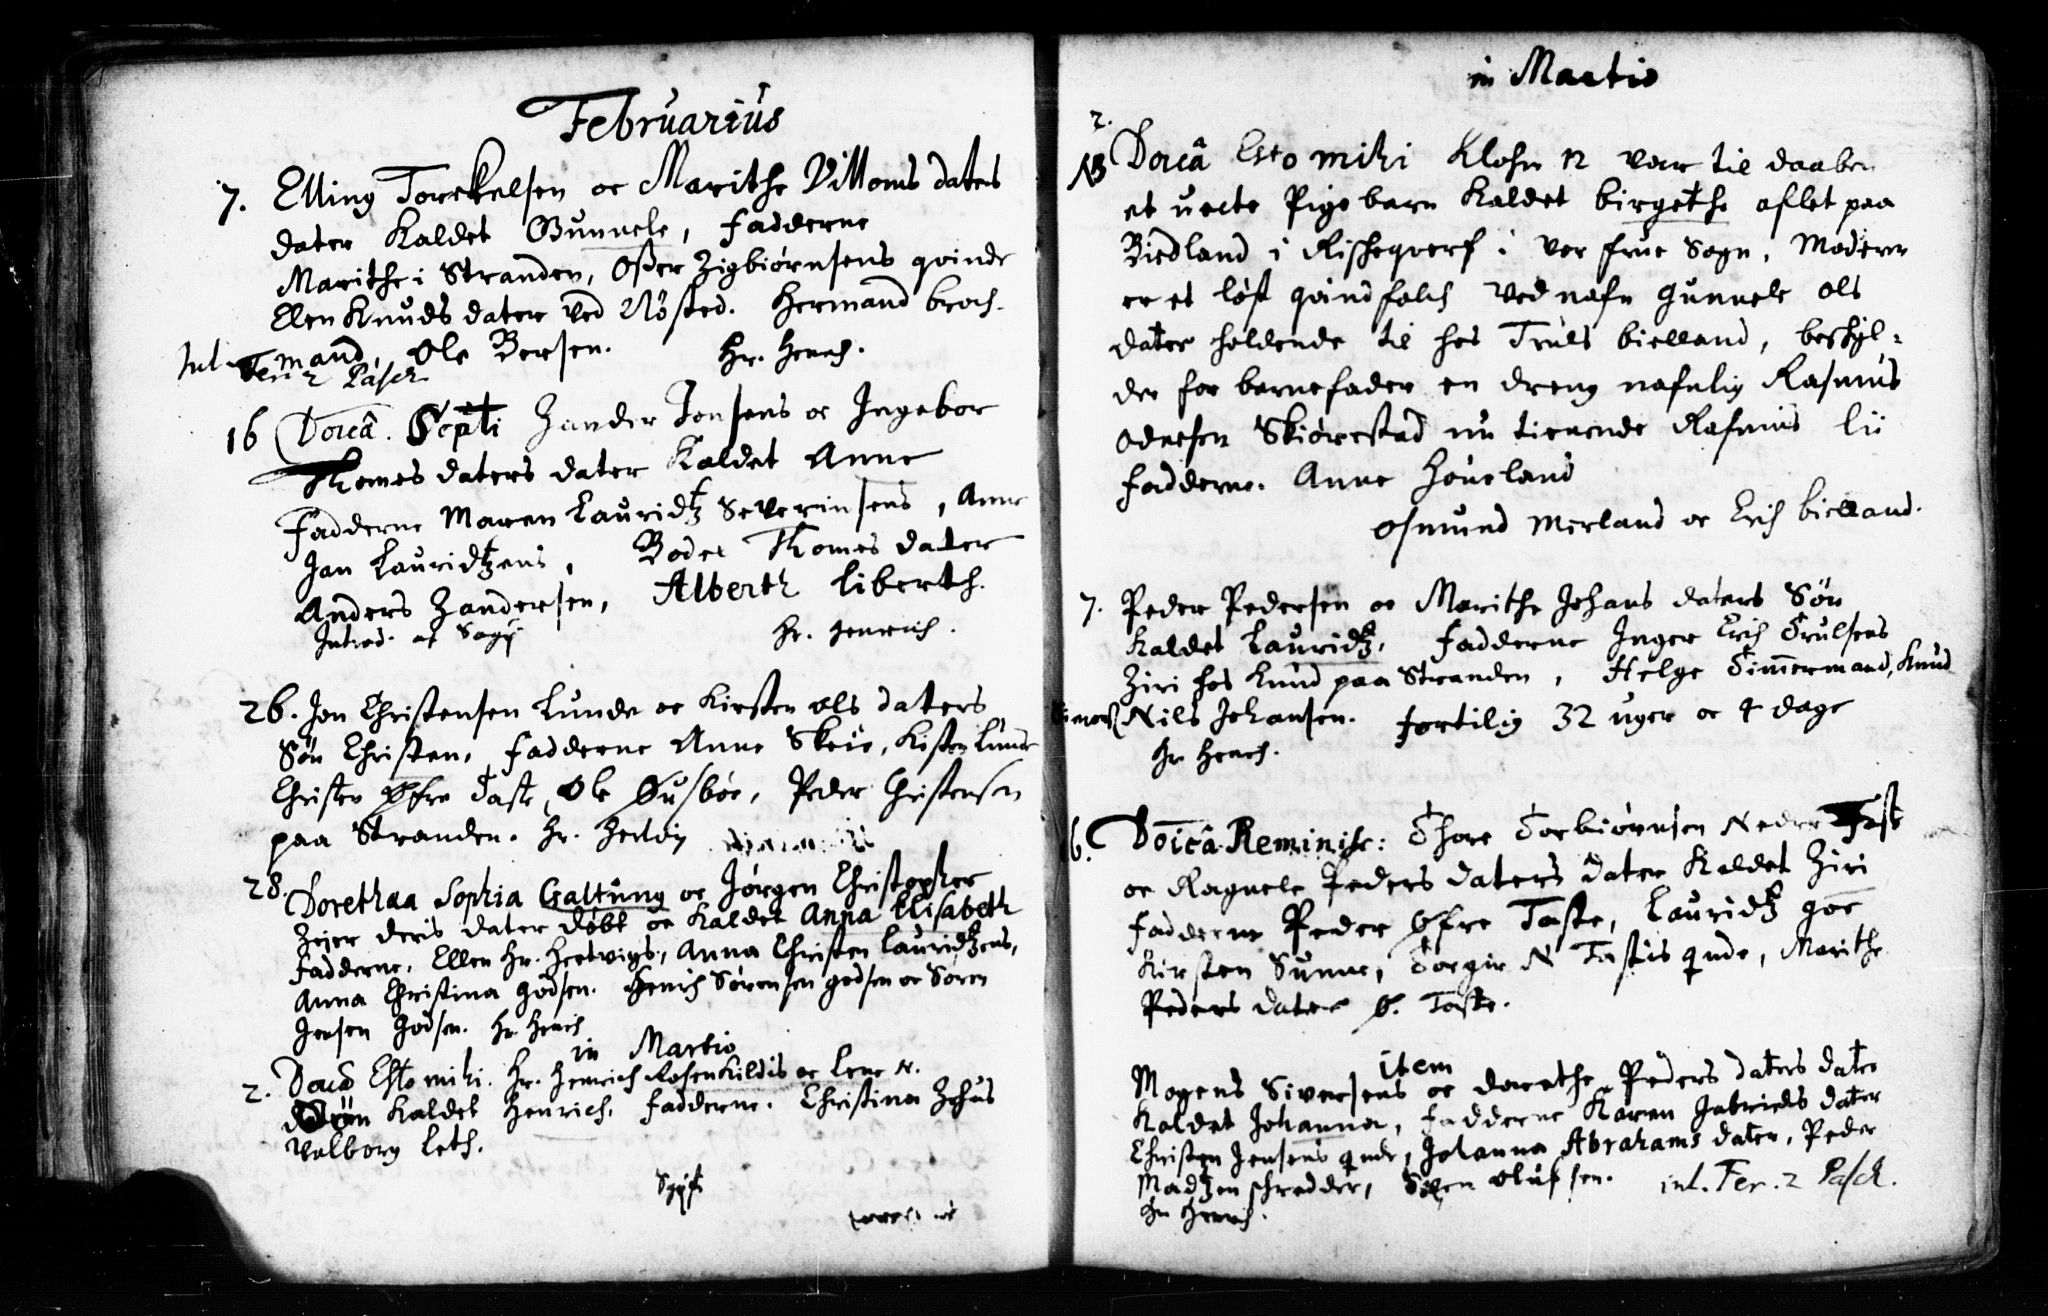 Februarius
7. Elling Torckelsen oc Marithe Villoms daters
dater Kaldet Gunnele, Fadderne
Marithe i Stranden, Oßer Zigbiørnsens qvinde
Ellen Knuds dater ved Nøsted. Hermand broch-
mand, Ole Bersen. Hr. Henrch.
Int. Fer. 2 Pasch
16 Doīcâ. Septi Zander Jonsens oc Ingebor
Thomes daters dater Kaldet Anne
Fadderne Maren Lauridtz Severinsens, Anne
Jan Lauridtzens, Bodel Thomes dater
Anders Zandersen, Alberth Liberth.
Introd. af Sogn Hr. Henrich.
26. Jon Christensen Lunde oc Kirsten Ols daters
Søn Christen, Fadderne Anne Skeie, Kisten Lunde
Christen Øfre Taste, Ole Busbøe, Peder Christensen
paa Stranden. Hr. Hertvig
28. Dorethaa Sophia Galtung oc Jørgen Christopher
Zejer deris dater døbt oc Kaldet Anna Elisabeth
Fadderne, Ellen Hr. Hertvigs, Anna Christen Lauridtzens,
Anna Christina Godsen. Henich Sørensen godsen oc Søren
Jensen Godsen. Hr. Henrich
in Martio
2. Doīcâ Esto mihi. Hr. Henrich Rosenkildis oc Lene N.
Søn Kaldet Henrich. Fadderne. Christina Zehus
Valborg Leth.
in Martio
2.
NB Doīcâ Esto mihi Klohn 12 var til daaben
et uecte Pige barn Kaldet birgethe aflet paa
Biedland i Rischeqverf i Vor frue Sogn, Moderen
er et løst qvindfolch ved nafn Gunnele Ols
dater holdende til hos Truls bielland, beskyl-
der for barnefader en dreng nafnlig Rasmus
Odnesen Skiørestad nu tienende Rasmus Lii
Fadderne. Anne Houeland
Osmund Merland oc Erich bielland.
7. Peder Pedersen oc Marithe Johans daters Søn
Kaldet Lauridtz, Fadderne Inger Erich Trulsens
Ziri hos Knud paa Stranden, Helge Timmermand, Knud
Nils Johansen. fortilig 32 uger oc 4 dage
Hr Henrch.
6. Doīcâ Reminisc: Thore Torbiørnsen Nedre Tast
oc Ragnele Peders daters dater Kaldet Ziri
Fadderne Peder Øfre Taste, Lauridtz goe
Kirsten Sunne, Torgir N Tastis qnde, Marithe
Peders dater Ø. Taste.
item
Mogens Siversens oc dorethe Peders daters dater
Kaldet Johanna, Fadderne Karen Gabriels dater
Christen Jensens qnde, Johanna Abrahams dater, Peder
Madtzen schredder, Søren Olufsen. int. Fer. 2 Pasch.
Hr Henrich.